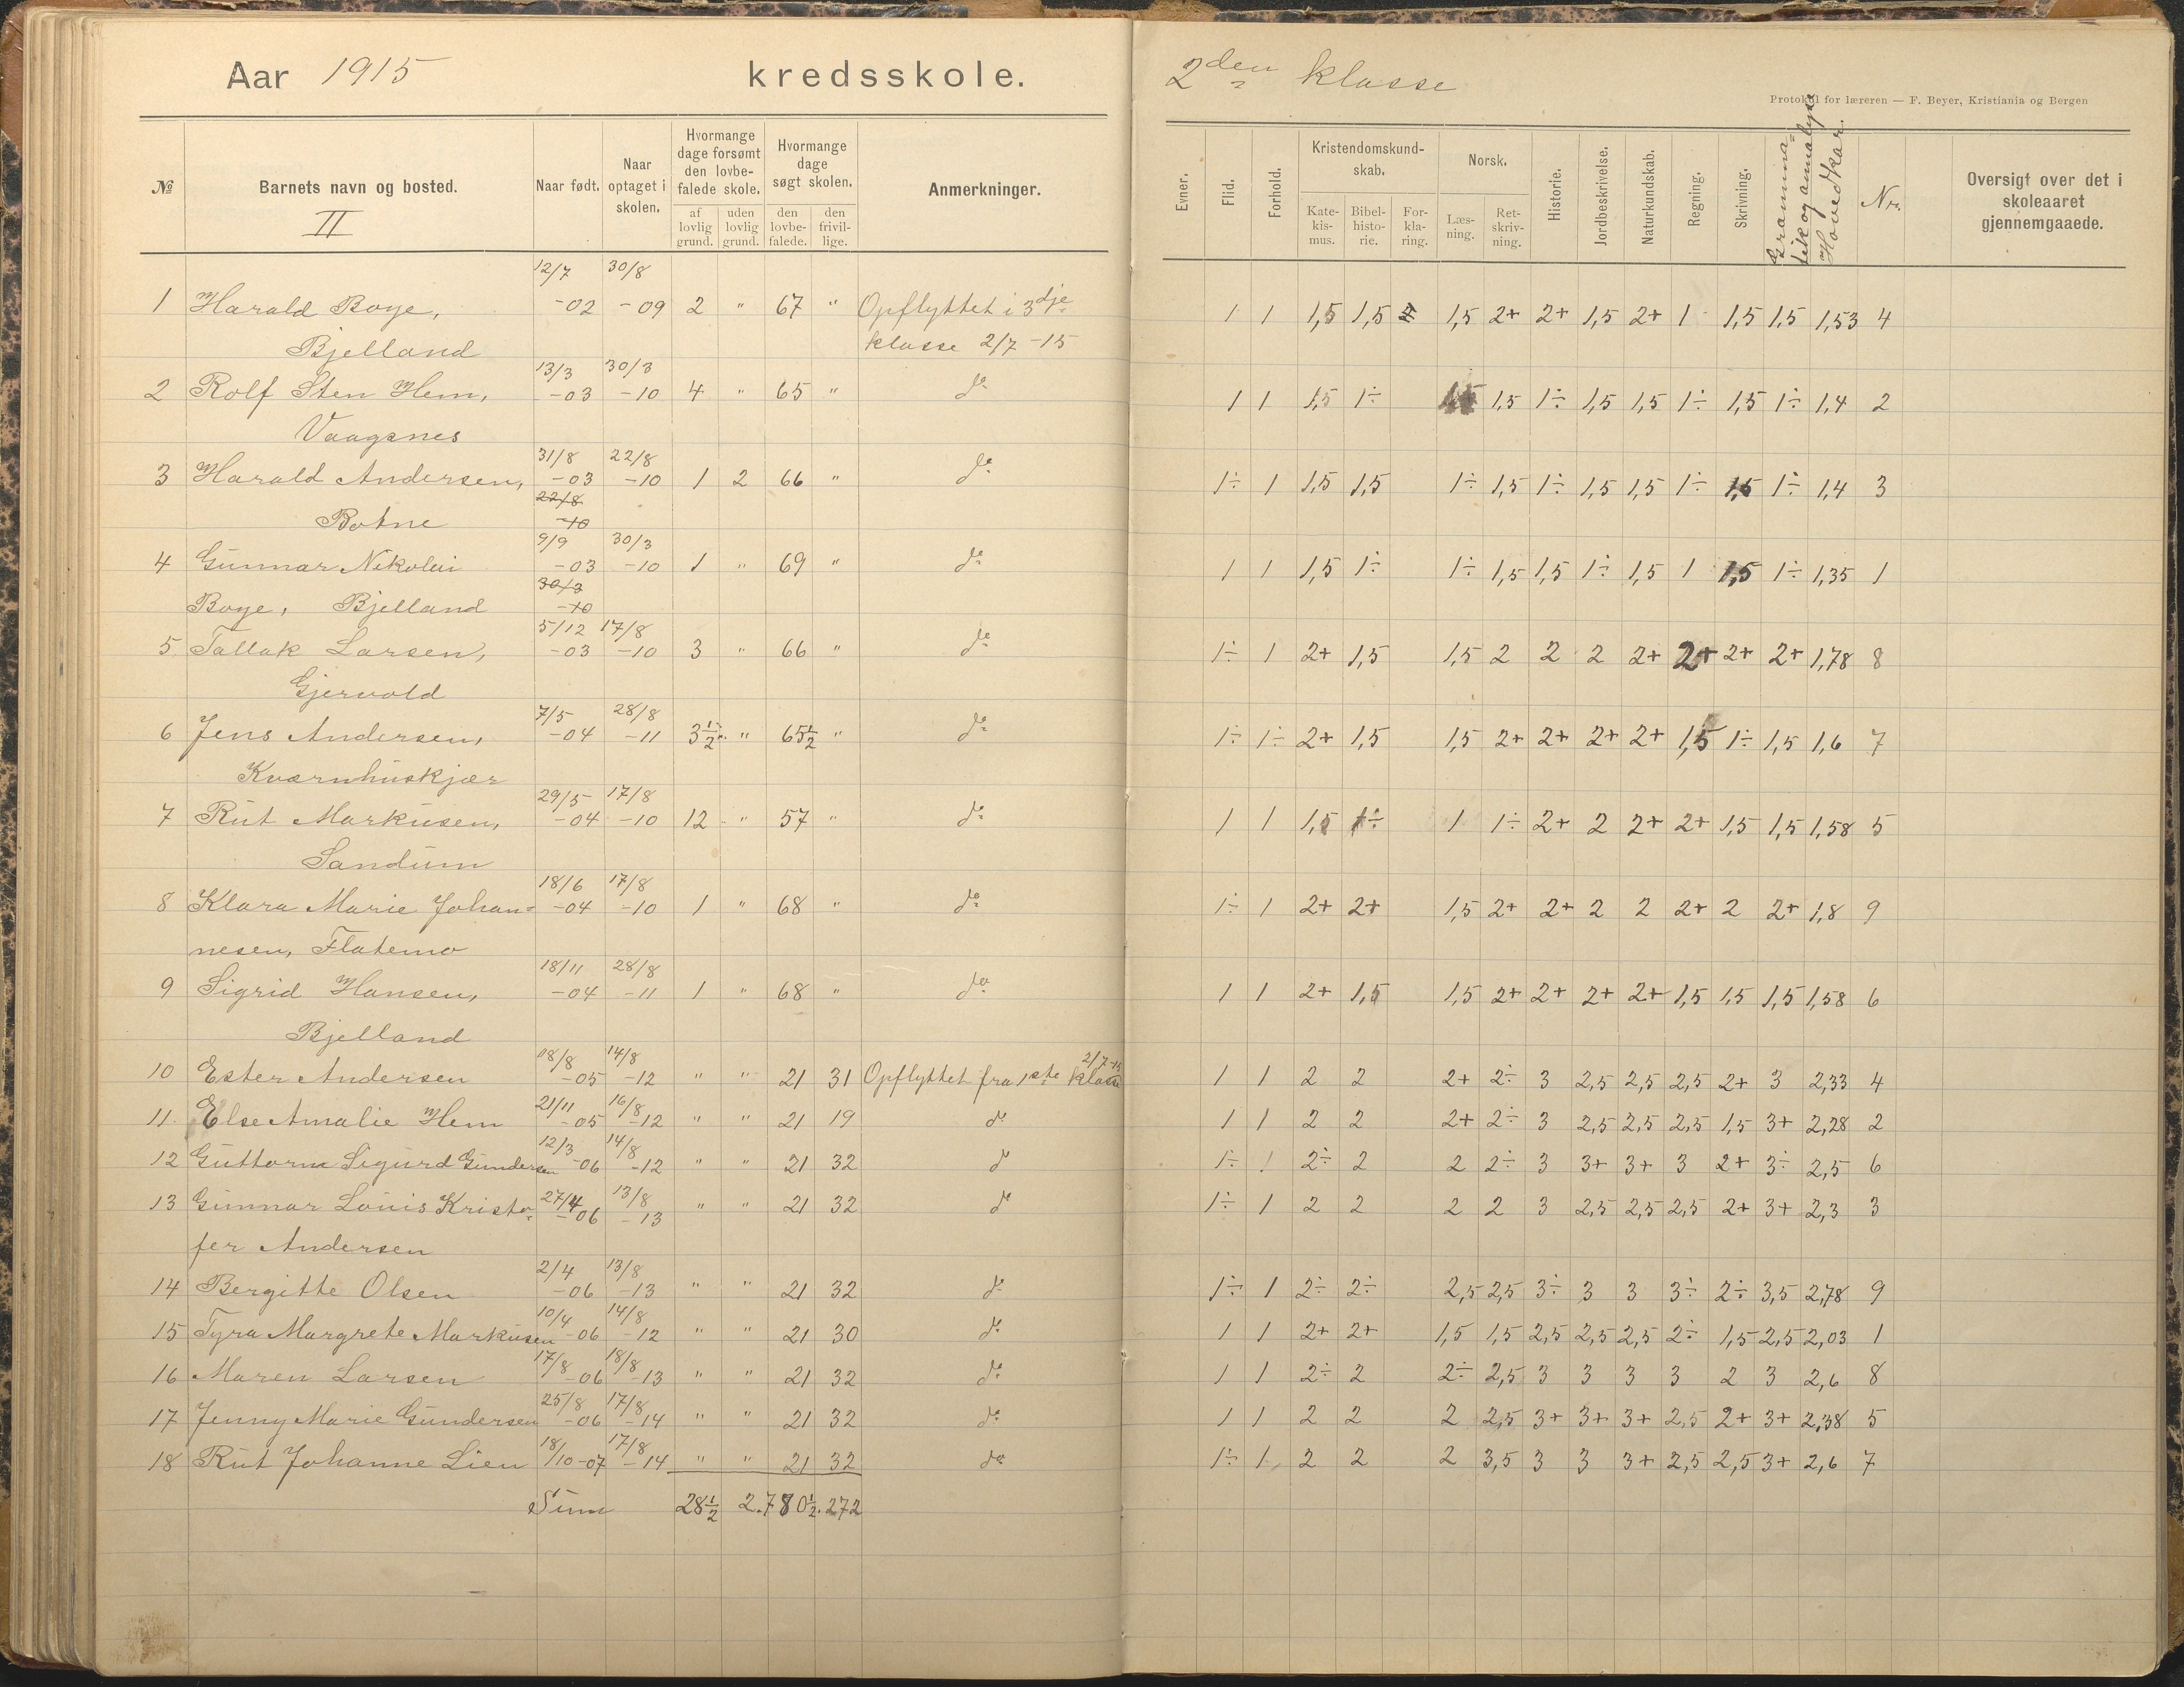 Aar 1915 kredsskole.
2den klasse
Protokol for læreren — F. Beyer, Kristiania og Bergen
№ Barnets navn og bosted. Naar født. Naar optaget i skolen. Hvormange dage forsømt den lovbefalede skole. Hvormange dage søgt skolen. Anmerkninger.
af lovlig grund. uden lovlig grund. den lovbefalede. den frivillige.
II
Evner. Flid. Forhold. Kristendomskundskab. Norsk. Historie. Jordbeskrivelse. Naturkundskab. Regning. Skrivning. Gramma= tik og annalyse Hovedkar. Nr. Oversigt over det i skoleaaret gjennemgaaede.
Katekismus. Bibelhistorie. Forklaring. Læsning. Retskrivning.
12/7 30/8
1 Harald Boye, -02 -09 2 " 67 " Opflyttet i 3dje 1 1 1,5 1,5 1,5 2+ 2+ 1,5 2+ 1 1,5 1,5 1,53 4
Bjelland klasse 2/7 -15
13/3 30/3
2 Rolf Sten Hem, -03 -10 4 " 65 " do 1 1 1,5 1÷ 1,5 1,5 1÷ 1,5 1,5 1÷ 1,5 1÷ 1,4 2
Vaagsnes
31/8 22/8
3 Harald Andersen, -03 -10 1 2 66 " do 1÷ 1 1,5 1,5 1÷ 1,5 1÷ 1,5 1,5 1÷ 1,5 1÷ 1,4 3
22/8
Botne -10
9/9 30/3
4 Gunnar Nikolai -03 -10 1 " 69 " do 1 1 1,5 1÷ 1÷ 1,5 1,5 1÷ 1,5 1 1,5 1÷ 1,35 1
30/3
Boye, Bjelland -10
5/12 17/8
5 Tallak Larsen, -03 -10 3 " 66 " do 1÷ 1 2+ 1,5 1,5 2 2 2 2+ 2+ 2+ 2+ 1,78 8
Gjervold
7/5 28/8
6 Jens Andersen, -04 -11 3½ " 65½ " do 1÷ 1÷ 2+ 1,5 1,5 2+ 2+ 2+ 2+ 1,5 1÷ 1,5 1,6 7
Kværnhuskjær
29/5 17/8
7 Rut Markusen, -04 -10 12 " 57 " do 1 1 1,5 1÷ 1 1÷ 2+ 2 2+ 2+ 1,5 1,5 1,58 5
Sandum
18/6 17/8
8 Klara Marie Johan= -04 -10 1 " 68 " do 1÷ 1 2+ 2+ 1,5 2+ 2+ 2 2 2+ 2 2+ 1,8 9
nesen, Flatemo
18/11 28/8
9 Sigrid Hansen, -04 -11 1 " 68 " do 1 1 2+ 1,5 1,5 2+ 2+ 2+ 2+ 1,5 1,5 1,5 1,58 6
Bjelland
18/8 14/8 2/7-15
10 Ester Andersen -05 -12 " " 21 31 Opflyttet fra 1ste klasse 1 1 2 2 2+ 2÷ 3 2,5 2,5 2,5 2+ 3 2,33 4
21/11 16/8
11. Else Amalie Hem -05 -12 " " 21 19 do 1 1 2 2 2+ 2÷ 3 2,5 2,5 2,5 1,5 3+ 2,28 2
12/3 14/8
12 Guttorm Sigurd Gundersen -06 -12 " " 21 32 do 1÷ 1 2÷ 2 2 2÷ 3 3+ 3+ 3 2+ 3÷ 2,5 6
27/4 13/8
13 Gunnar Louis Kristo= -06 -13 " " 21 32 do 1÷ 1 2 2 2 2 3 2,5 2,5 2,5 2+ 3+ 2,3 3
fer Andersen
2/4 13/8
14 Bergitte Olsen -06 -13 " " 21 32 do 1÷ 1 2÷ 2÷ 2,5 2,5 3÷ 3 3 3÷ 2÷ 3,5 2,78 9
10/4 14/8
15 Tyra Margrete Markusen -06 -12 " " 21 30 do 1 1 2+ 2+ 1,5 1,5 2,5 2,5 2,5 2÷ 1,5 2,5 2,03 1
17/8 18/8
16 Maren Larsen -06 -13 " " 21 32 do 1 1 2÷ 2 2÷ 2,5 3 3 3 3 2 3 2,6 8
25/8 17/8
17 Jenny Marie Gundersen -06 -14 " " 21 32 do 1 1 2 2 2 2,5 3+ 3+ 3+ 2,5 2+ 3+ 2,38 5
18 17/8
18 Rut Johanne Lien /10-07 -14 " " 21 32 do 1÷ 1 2 2 2 3,5 3 3 3+ 2,5 2,5 3+ 2,6 7
Sum 28½ 2. 780½. 272